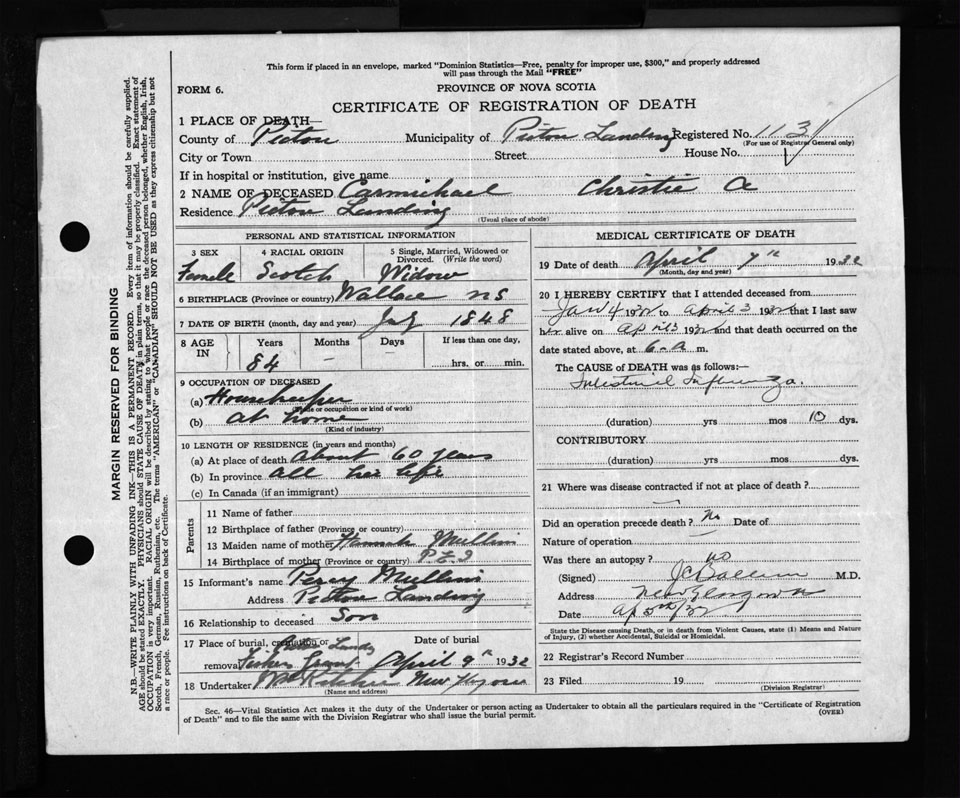 This form if placed in an envelope, marked "Dominion Statistics—Free, penalty for improper use, $300," and properly addressed
will pass through the Mail "FREE"
FORM 6.
PROVINCE OF NOVA SCOTIA
CERTIFICATE OF REGISTRATION OF DEATH
1 PLACE OF DEATH—
County of Pictou Municipality of Pictou Landing Registered No. 1131
(For use of Registrar General only)
City or Town Street House No.
If in hospital or institution, give name
2 NAME OF DECEASED Carmichael Christie A
Residence Pictou Landing
(Usual place of abode)
PERSONAL AND STATISTICAL INFORMATION
3 SEX 4 RACIAL ORIGIN 5 Single, Married, Widowed or
Divorced. (Write the word)
Female Scotch Widow
6 BIRTHPLACE (Province or country) Wallace NS
7 DATE OF BIRTH (month, day and year) July 1848
8 AGE IN Years Months Days If less than one day,
84 — — hrs. or min.
9 OCCUPATION OF DECEASED
(a) Housekeeper
(Trade or occupation or kind of work)
(b) at home
(Kind of industry)
10 LENGTH OF RESIDENCE (in years and months)
(a) At place of death About 60 years
(b) In province all her life
(c) In Canada (if an immigrant)
Parents
11 Name of father
12 Birthplace of father (Province or country)
13 Maiden name of mother Hannah Mullin
14 Birthplace of mother (Province or country) P.E.I
15 Informant's name Percy Mullins
Address Pictou Landing
16 Relationship to deceased Son
17 Place of burial, cremation or Date of burial
removal Fishers Grant April 9th 1932
18 Undertaker Wm Ritchie New
(Name and address)
MEDICAL CERTIFICATE OF DEATH
19 Date of death April 7th 1932
(Month, day and year)
20 I HEREBY CERTIFY that I attended deceased from
Jan 4 1932 to April 3 1932 that I last saw
her alive on April 3 1932 and that death occurred on the
date stated above, at 6-A m.
The CAUSE of DEATH was as follows:—
Intestinal Influenza.
(duration) yrs mos 10 dys.
CONTRIBUTORY
(duration) yrs mos dys.
21 Where was disease contracted if not at place of death?
Did an operation precede death? No Date of
Nature of operation
Was there an autopsy? no
(Signed) M.D.
Address New Glasgow
Date
State the Disease causing Death, or in death from Violent Causes, state (1) Means and Nature
of Injury, (2) whether Accidental, Suicidal or Homicidal.
22 Registrar's Record Number
23 Filed 19
(Division Registrar)
Sec. 46—Vital Statistics Act makes it the duty of the Undertaker or person acting as Undertaker to obtain all the particulars required in the "Certificate of Registration
of Death" and to file the same with the Division Registrar who shall issue the burial permit.
(OVER)
MARGIN RESERVED FOR BINDING
N.B.—WRITE PLAINLY WITH UNFADING INK—THIS IS A PERMANENT RECORD. Every item of information should be carefully supplied.
AGE should be stated EXACTLY. PHYSICIANS should STATE CAUSE OF DEATH in plain terms, so that it may be properly classified. Exact statement of
OCCUPATION is very important. RACIAL ORIGIN will be described by stating to what people or race the deceased person belonged, whether English, Irish,
Scotch, French, German, Russian, Ruthenian, etc. The terms "AMERICAN" or "CANADIAN" SHOULD NOT BE USED as they express citizenship but not
a race or people. See instructions on back of Certificate.